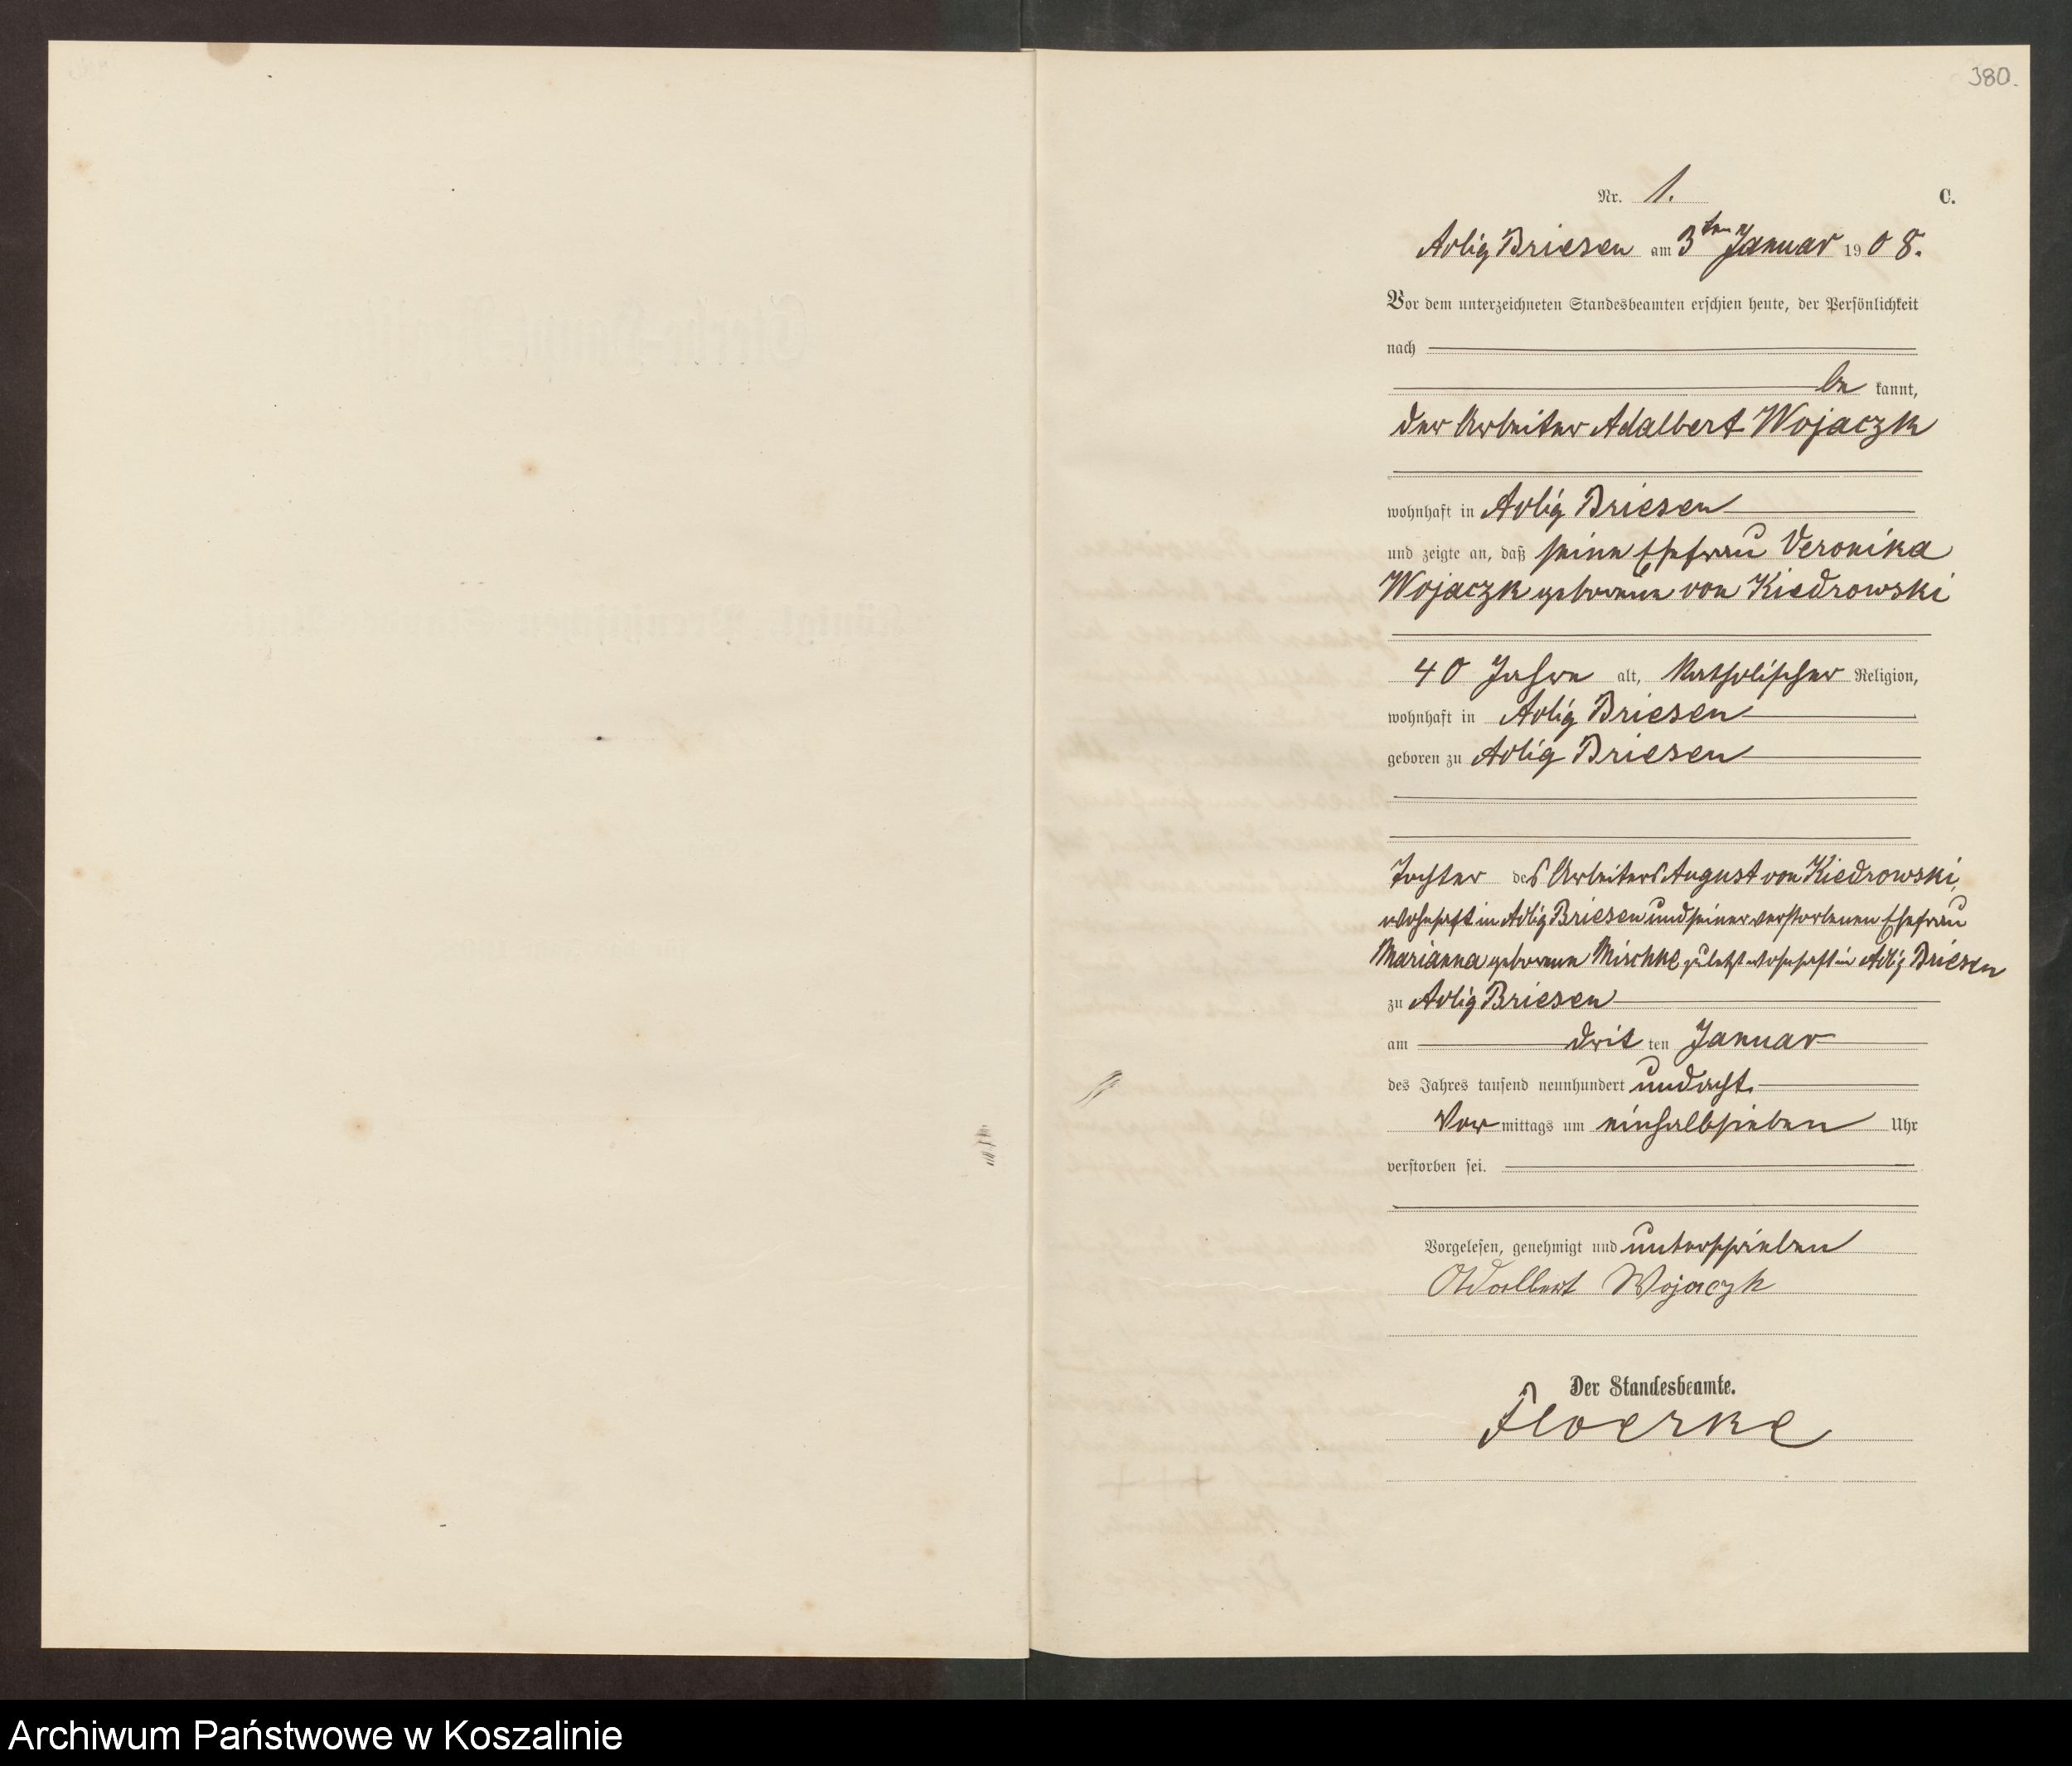 380.
Nr. 1.
C.
Adlig Briesen am 3ten Januar 1908.
Vor dem unterzeichneten Standesbeamten erschien heute, der Persönlichkeit
nach
be kannt,
der Arbeiter Adalbert Wojaczk
wohnhaft in Adlig Briesen
und zeigte an, daß seine Ehefrau Veronika
Wojaczk geborene von Kiedrowski
40 Jahre alt, katholischer Religion,
wohnhaft in Adlig Briesen
geboren zu Adlig Briesen
Tochter des Arbeiters August von Kiedrowski,
wohnhaft in Adlig Briesen und seiner verstorbenen Ehefrau
Marianna geborene Mischke zuletzt wohnhaft in Adlig Briesen
zu Adlig Briesen
am dritten Januar
des Jahres tausend neunhundert undacht
Vormittags um einhalbsieben Uhr
verstorben sei.
Vorgelesen, genehmigt und unterschrieben
Adalbert Wojaczk
Der Standesbeamte.
Floerke
Archiwum Państwowe w Koszalinie